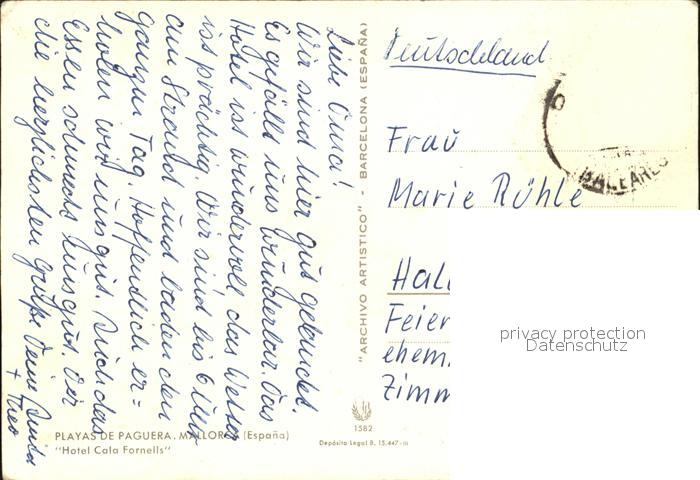 Liebe Oma!
Wir sind hier gut gelandet.
Es gefällt uns wunderbar. Das
Hotel ist wundervoll das Wetter
ist prächtig. Wir sind bis 6 Uhr
am Strand und baden den
ganzen Tag. Hoffendlich er-
holen wir uns gut. Auch das
Essen schmeckt uns gut. Dir
die herzlichsten Grüße Deine
+ Theo
"ARCHIVO ARTISTICO" - BARCELONA (ESPAÑA)
Deutschland
BALEARES
Frau
Marie Rühle
Hal
Feier
ehem.
Zimm
privacy protection
Datenschutz
1582
Depósito Legal B. 15.447-III
PLAYAS DE PAGUERA. MALLORCA (España)
"Hotel Cala Fornells"